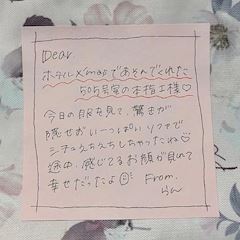 Dear.
ホテルX'masであそんでくれた
505号室の本指王様♡
今日の服を見て、驚きが
隠せがいーっぱい ソファで
シチュえちえちしちゃったね♡
途中、感じてるお顔が見れて
幸せだったよ
From.
らん